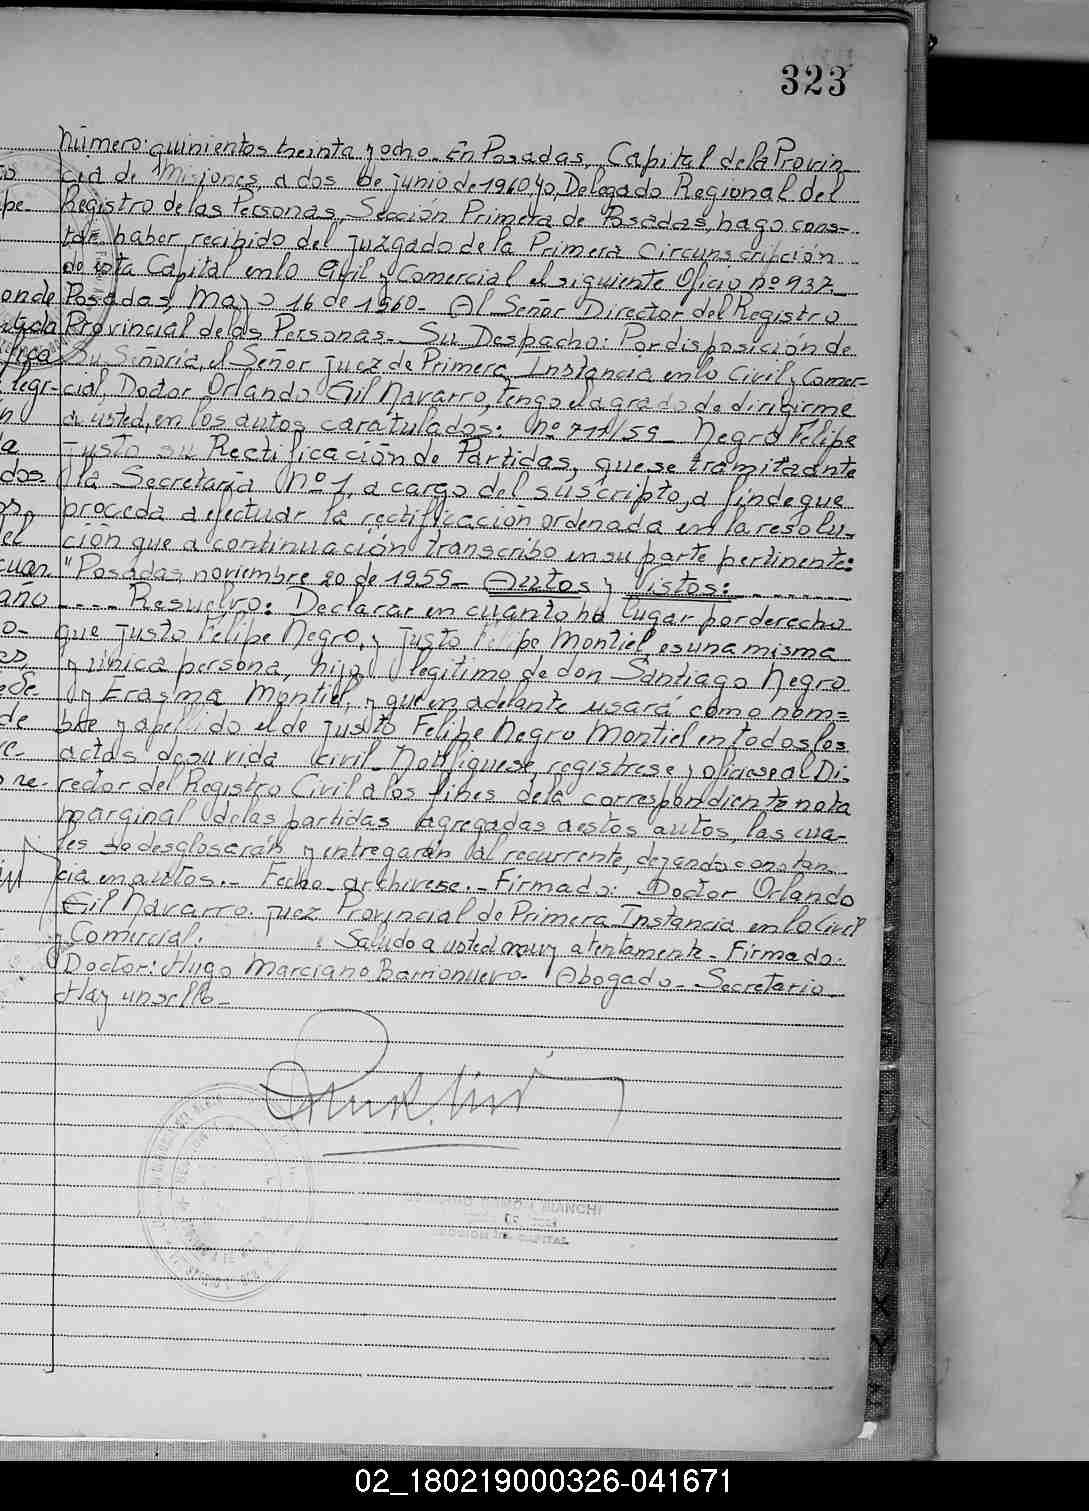 323
Número: quinientos treinta y ocho. En Posadas, Capital de la Provin-
cia de Misiones, a dos de junio de 1960, yo, Delegado Regional del
Registro de las Personas, Sección Primera de Posadas, hago cons-
tar haber recibido del juzgado de la Primera Circunscripción
de esta Capital en lo Civil y Comercial el siguiente Oficio nº 937.
Posadas, Mayo 16 de 1960. Al Señor Director del Registro
Provincial de las Personas. Su Despacho: Por disposición de
Su Señoría, el Señor juez de Primera Instancia en lo Civil y Comer-
cial, Doctor Orlando Gil Navarro, tengo el agrado de dirigirme
a usted, en los autos caratulados: nº 711/59 Negro Felipe
justo su Rectificación de Partidas, que se tramita ante
la Secretaría Nº 1, a cargo del suscripto, a fin de que
proceda a efectuar la rectificación ordenada en la resolu-
ción que a continuación transcribo en su parte pertinente:
"Posadas, noviembre 20 de 1959- Autos y Vistos:
Resuelvo: Declarar en cuanto ha lugar por derecho
que justo Felipe Negro, y justo Felipe Montiel, es una misma
y única persona, hijo legitimo de don Santiago Negro
y Erasma Montiel, y que en adelante usará como nom=
bre y apellido el de justo Felipe Negro Montiel en todos los
actos de su vida civil. Notifiquese, registrese y oficiese al Di-
rector del Registro Civil a los fines de la correspondiente nota
marginal de las partidas agregadas a estos autos, las cua-
les se desglosarán y entregarán al recurrente, dejando constan-
cia en autos.- Fecho- archivese.- Firmado: Doctor Orlando
Gil Navarro. juez Provincial de Primera Instancia en lo Civil
y Comercial. Saludo a usted muy atentamente- Firmado:
Doctor: Hugo Marciano Barrionuevo- Abogado- Secretario.
Hay un sello-
BIANCHI
CAPITAL
02_180219000326-041671